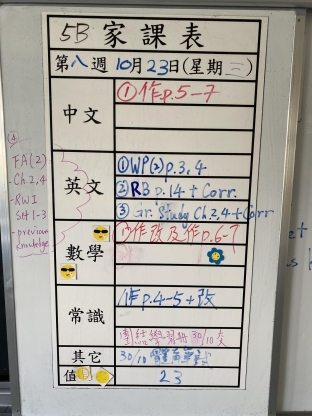 5B 家課表
第八週 10月23日(星期三)
中文
①作p.5-7
英文
①WP(2)p.3,4
②RB p.14 + Corr.
③Gr. Study Ch.2,4 + Corr
FA(2)
- Ch.2,4
- RWI
Set 1-3
- previous
knowledge
數學
①作改及作p.6-7
常識
作p.4-5+改
30/10交
其它
30/10
值
23